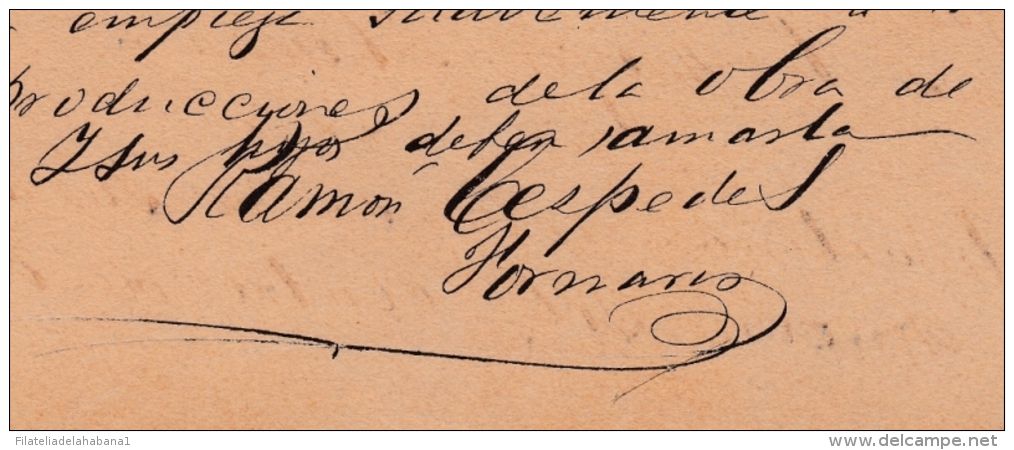 empieza suavemente a
producciones de la obra de
Y sus hijos deben amarla
Ramon Cespedes
Fornaris
Filateliadelahabana1
www.delcampe.net